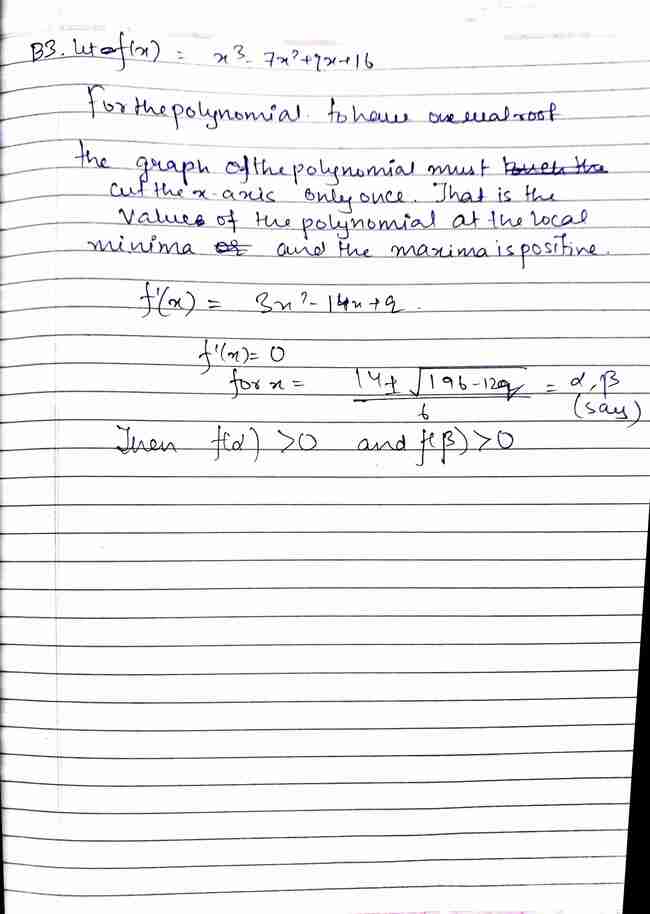 B3. let f(x) = x³ - 7x² + qx + 16
for the polynomial to have one real root
the graph of the polynomial must touch the
cut the x-axis only once. That is the
values of the polynomial at the local
minima of and the maxima is positive.
f'(x) = 3x² - 14x + q.
f'(x) = 0
for x = 14 ± √196-12q / 6 = α, β
(say)
Then f(α) > 0 and f(β) > 0